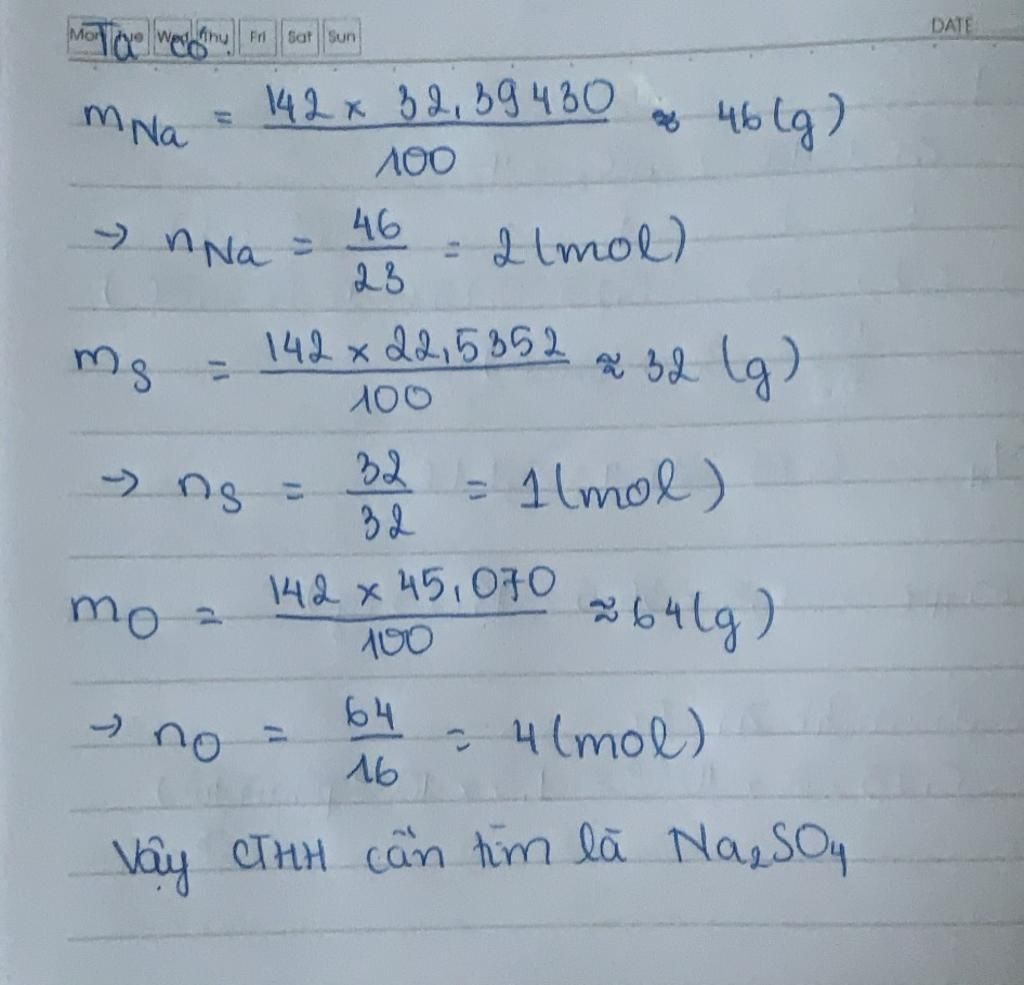 Mon Tue Wed Thu Fri Sat Sun DATE
Ta có
m_Na = (142 x 32,39430)/100 ≈ 46 (g)
→ n_Na = 46/23 = 2 (mol)
m_S = (142 x 22,5352)/100 ≈ 32 (g)
→ n_S = 32/32 = 1 (mol)
m_O = (142 x 45,070)/100 ≈ 64 (g)
→ n_O = 64/16 = 4 (mol)
Vậy CTHH cần tìm là Na₂SO₄